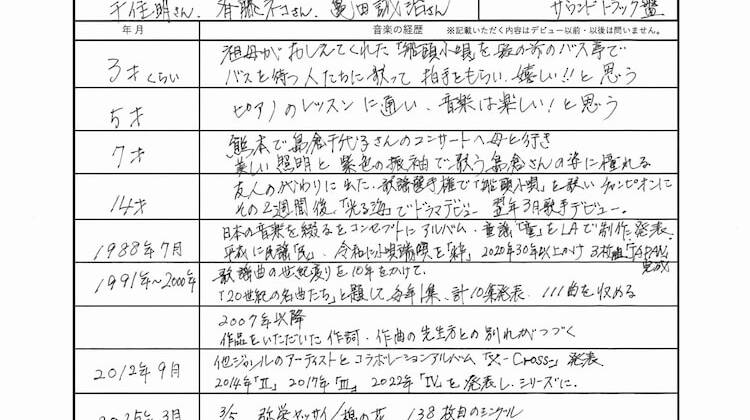 千住明さん、斉藤ネコさん、亀田誠治さん
サウンドトラック盤
年月
音楽の経歴 ※記載いただく内容はデビュー以前・以後は問いません。
3才くらい
祖母がおしえてくれた「船頭小唄」を家の前のバス亭で
バスを待つ人たちに歌って拍手をもらい、嬉しい!!と思う
5才
ピアノのレッスンに通い、音楽は楽しい!と思う
7才
熊本で島倉千代子さんのコンサートへ母と行き
美しい照明と紫色の振袖で歌う島倉さんの姿に憧れる
14才
友人の代わりに出た、歌謡選手権で「船頭小唄」を歌いチャンピオンに
その2週間後、「光る海」でドラマデビュー 翌年3月歌手デビュー。
1988年7月
日本の音楽を綴るをコンセプトにアルバム・童謡「童」をLAで制作、発表。
平成に民謡「民」、令和に小唄端唄を「粋」 2020年30年以上かけ 3枚組「JAPAN」完成
1991年~2000年
歌謡曲の世紀渡りを10年をかけて。
「20世紀の名曲たち」と題して 毎年1集、計10集発表 111曲を収める
2007年以降
作品をいただいた作詞・作曲の先生方との別れがつづく
2012年9月
他ジャンルのアーティストとコラボレーションアルバム「X-Cross-」発表
2014年「Ⅱ」 2017年「Ⅲ」 2022年「Ⅳ」を発表し、シリーズに。
2025年3月
3/5 弥栄ヤッサイ/棉の花 138枚目のシングル